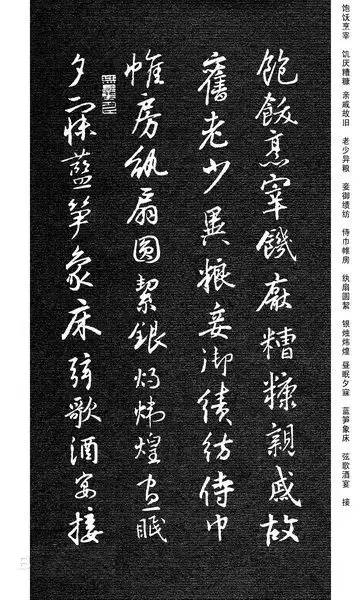 饱饫烹宰 饥厌糟糠 亲戚故旧 老少异粮 妾御绩纺 侍巾帷房 纨扇圆絜 银烛炜煌 昼眠夕寐 蓝笋象床 弦歌酒宴 接
飽飫烹宰饑厭糟糠親戚故
舊老少異粮妾御績紡侍巾
帷房紈扇圓絜銀烛煒煌晝眠
夕寐藍笋象床弦歌酒宴接